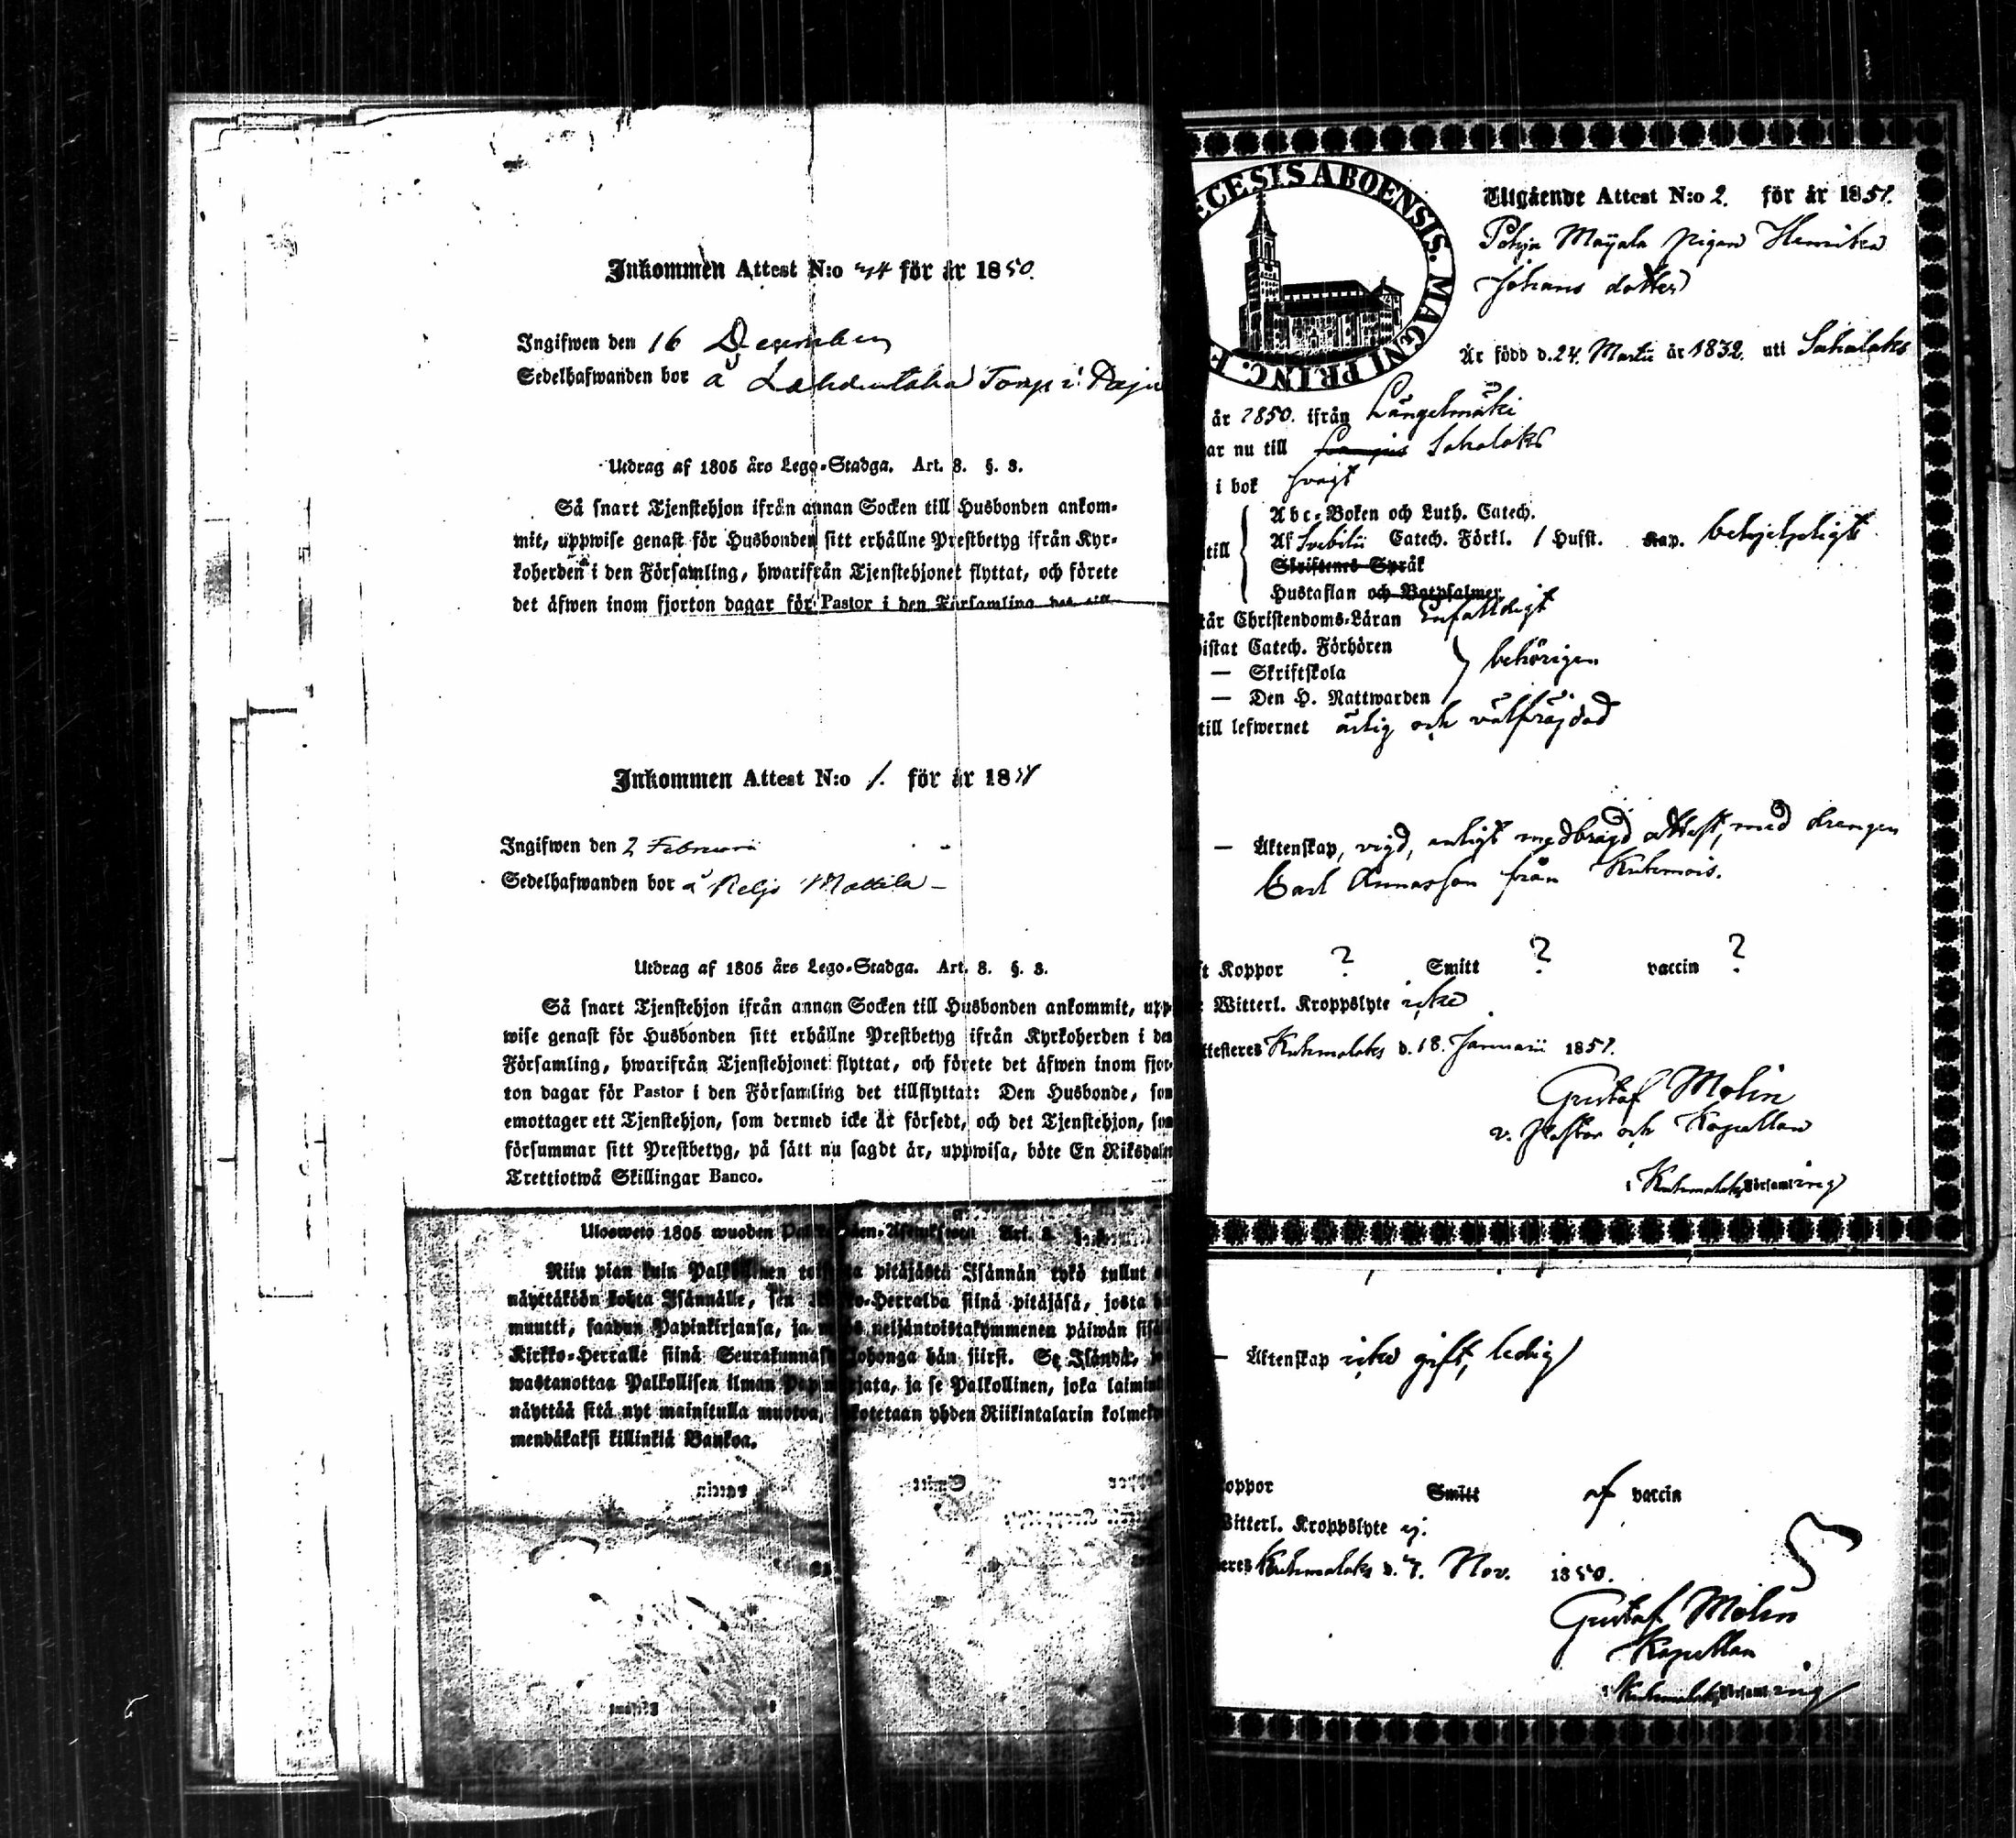 Inkommen Attest N:o 74 för år 1850.
Ingifwen den 16 December
Sedelhafwanden bor å Lahdentaka Torp i
Utdrag af 1805 års Lego-Stadga. Art. 8. §. 3.
Så snart Tjenstehjon ifrån annan Socken till Husbonden ankom-
mit, uppwise genast för Husbonden sitt erhållne Prestbetyg ifrån Kyr-
koherden i den Församling, hwarifrån Tjenstehjonet flyttat, och förete
det äfwen inom fjorton dagar för Pastor i den Församling det till
Inkommen Attest N:o 1. för år 1851
Ingifwen den 2 Februari
Sedelhafwanden bor å Mattila
Utdrag af 1805 års Lego-Stadga. Art. 8. §. 3.
Så snart Tjenstehjon ifrån annan Socken till Husbonden ankommit, upp-
wise genast för Husbonden sitt erhållne Prestbetyg ifrån Kyrkoherden i den
Församling, hwarifrån Tjenstehjonet flyttat, och förete det äfwen inom fjor-
ton dagar för Pastor i den Församling det tillflyttat: Den Husbonde, som
emottager ett Tjenstehjon, som dermed icke är försedt, och det Tjenstehjon, som
försummar sitt Prestbetyg, på sätt nu sagdt är, uppwisa, böte En Riksdaler
Trettiotwå Skillingar Banco.
Uloswetо 1805 wuoden Art. 8.
Niin pian kuin Palkollinen pitäjästä Isännän tykö tullut
näyttäköön kohta Isännälle, sen Herralda siinä pitäjäsä, josta
muutti, saadun Papinkirjansa, ja neljäntoistakymmenen päiwän
Kirkko-Herralle siinä Seurakunnasa johonga hän siirst. Se Isändä,
wastanottaa Palkollisen ilman ja se Palkollinen, joka
näyttää sitä nyt mainitulla muotoa, yhden Riikintalarin
mendäkaksi killinkiä Bankoa.
ECESIS ABOENSIS. MAGNI PRINC. F
Utgående Attest N:o 2. för år 1851.
Pohja Mayala pigan Henrika
Johans dotter
Är född d. 24. Martii år 1832. uti Sahalaks
år 1850. ifrån Längelmäki
ar nu till Sahalaks
i bok svagt
Abc-Boken och Luth. Catech.
till Af Svebilii Catech. Förkl. / Husst. Kap. behjelpligt
Skriftenes Språk
Hustaflan och Botpsalmer
tår Christendoms-Läran Enfaldigt
istat Catech. Förhören
— Skriftskola behörigen
— Den H. Nattwarden
till lefwernet ärlig och välfräjdad
— Äktenskap, vigd, enligt medbragd attest, med drengen
Carl Annasson från Kuhmois.
ft Koppor ? Smitt ? vaccin ?
Witterl. Kroppslyte icke
ttesteres Kuhmalaks d. 18. Januarii 1851.
Gustaf Molin
v. Pastor och Kapellan
i Kuhmalaks Församling
— Äktenskap icke gift, ledig
oppor Smitt af vaccin
Witterl. Kroppslyte ej.
eres Kuhmalaks d. 7. Nov. 1850.
Gustaf Molin
Kapellan
i Kuhmalaks Församling